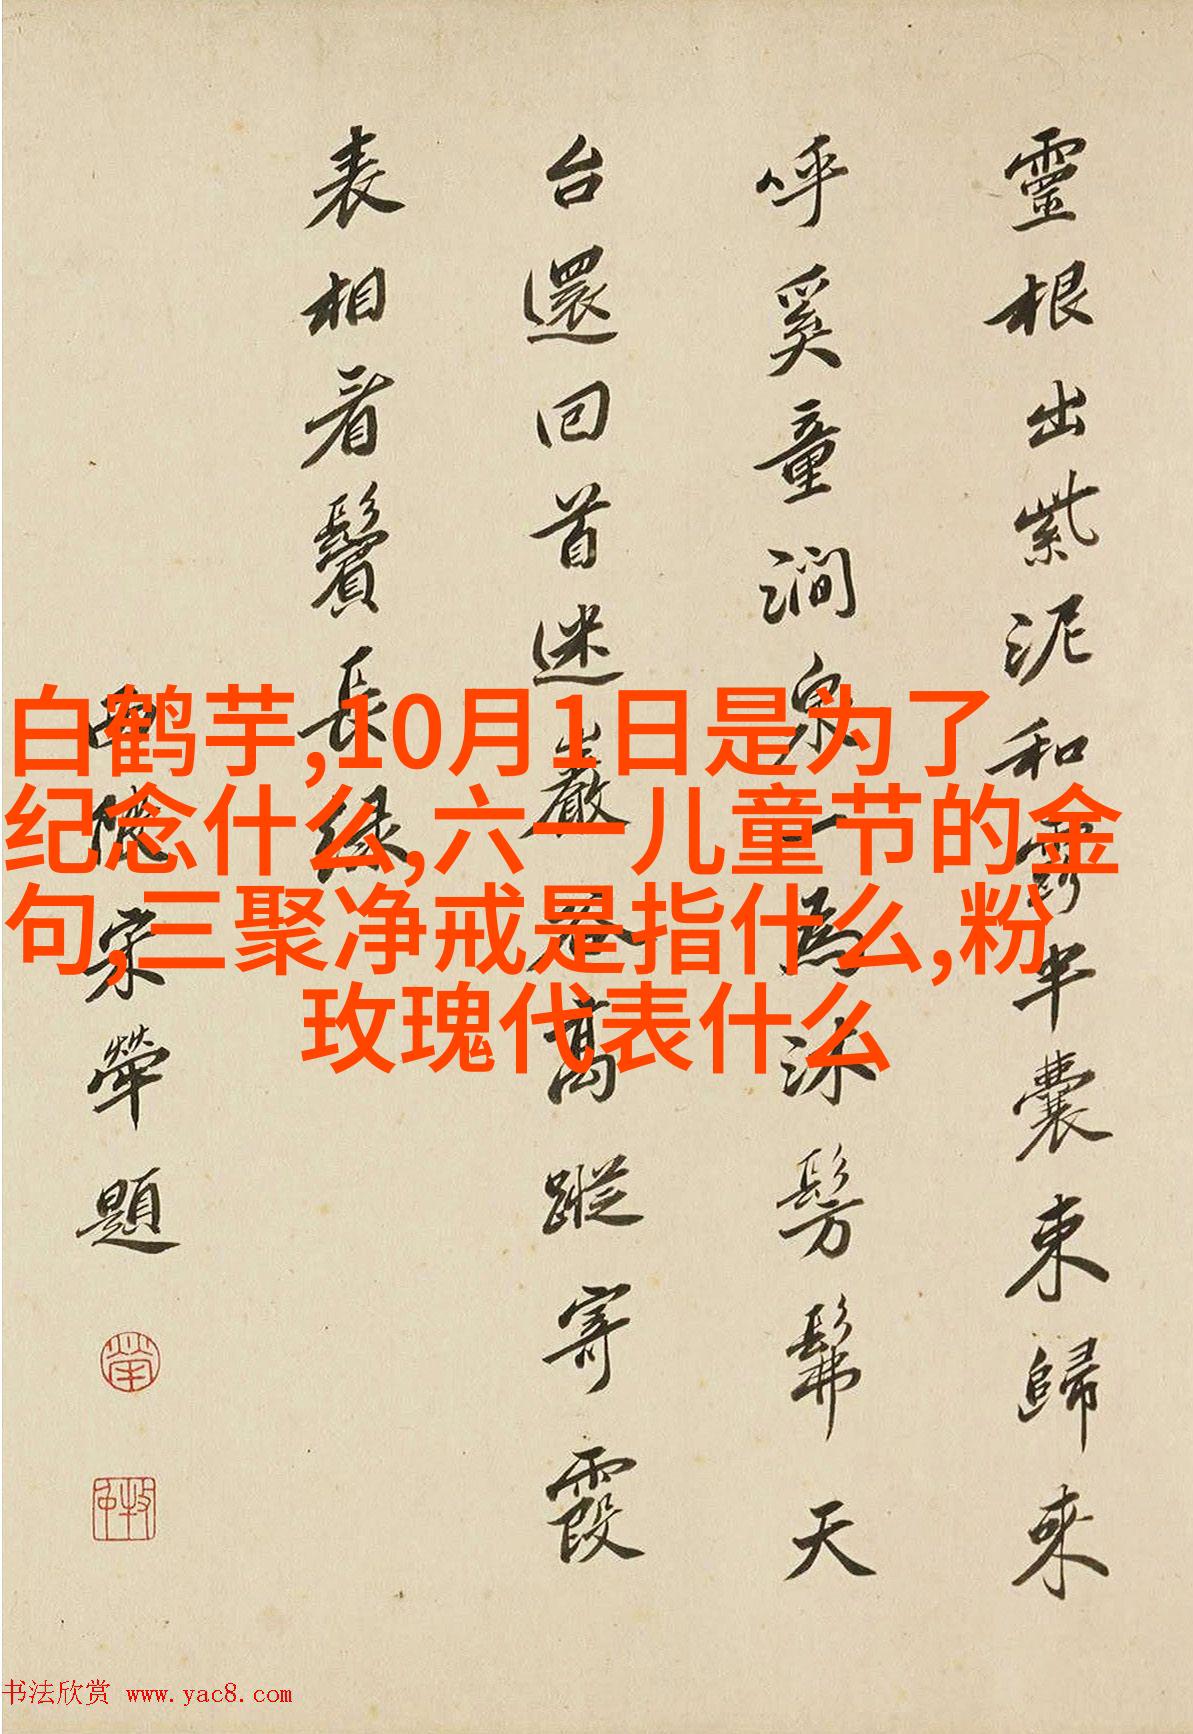 靈根出紫泥和露半囊束歸來
呼奚童澗泉一為沐髣髴天
台還回首迷巖谷高蹤寄霞
表相看鬢長綠
西陂宋犖題
犖
牧仲
白鹤芋,10月1日是为了
纪念什么,六一儿童节的金
句,三聚净戒是指什么,粉
玫瑰代表什么
书法欣赏 www.yac8.com